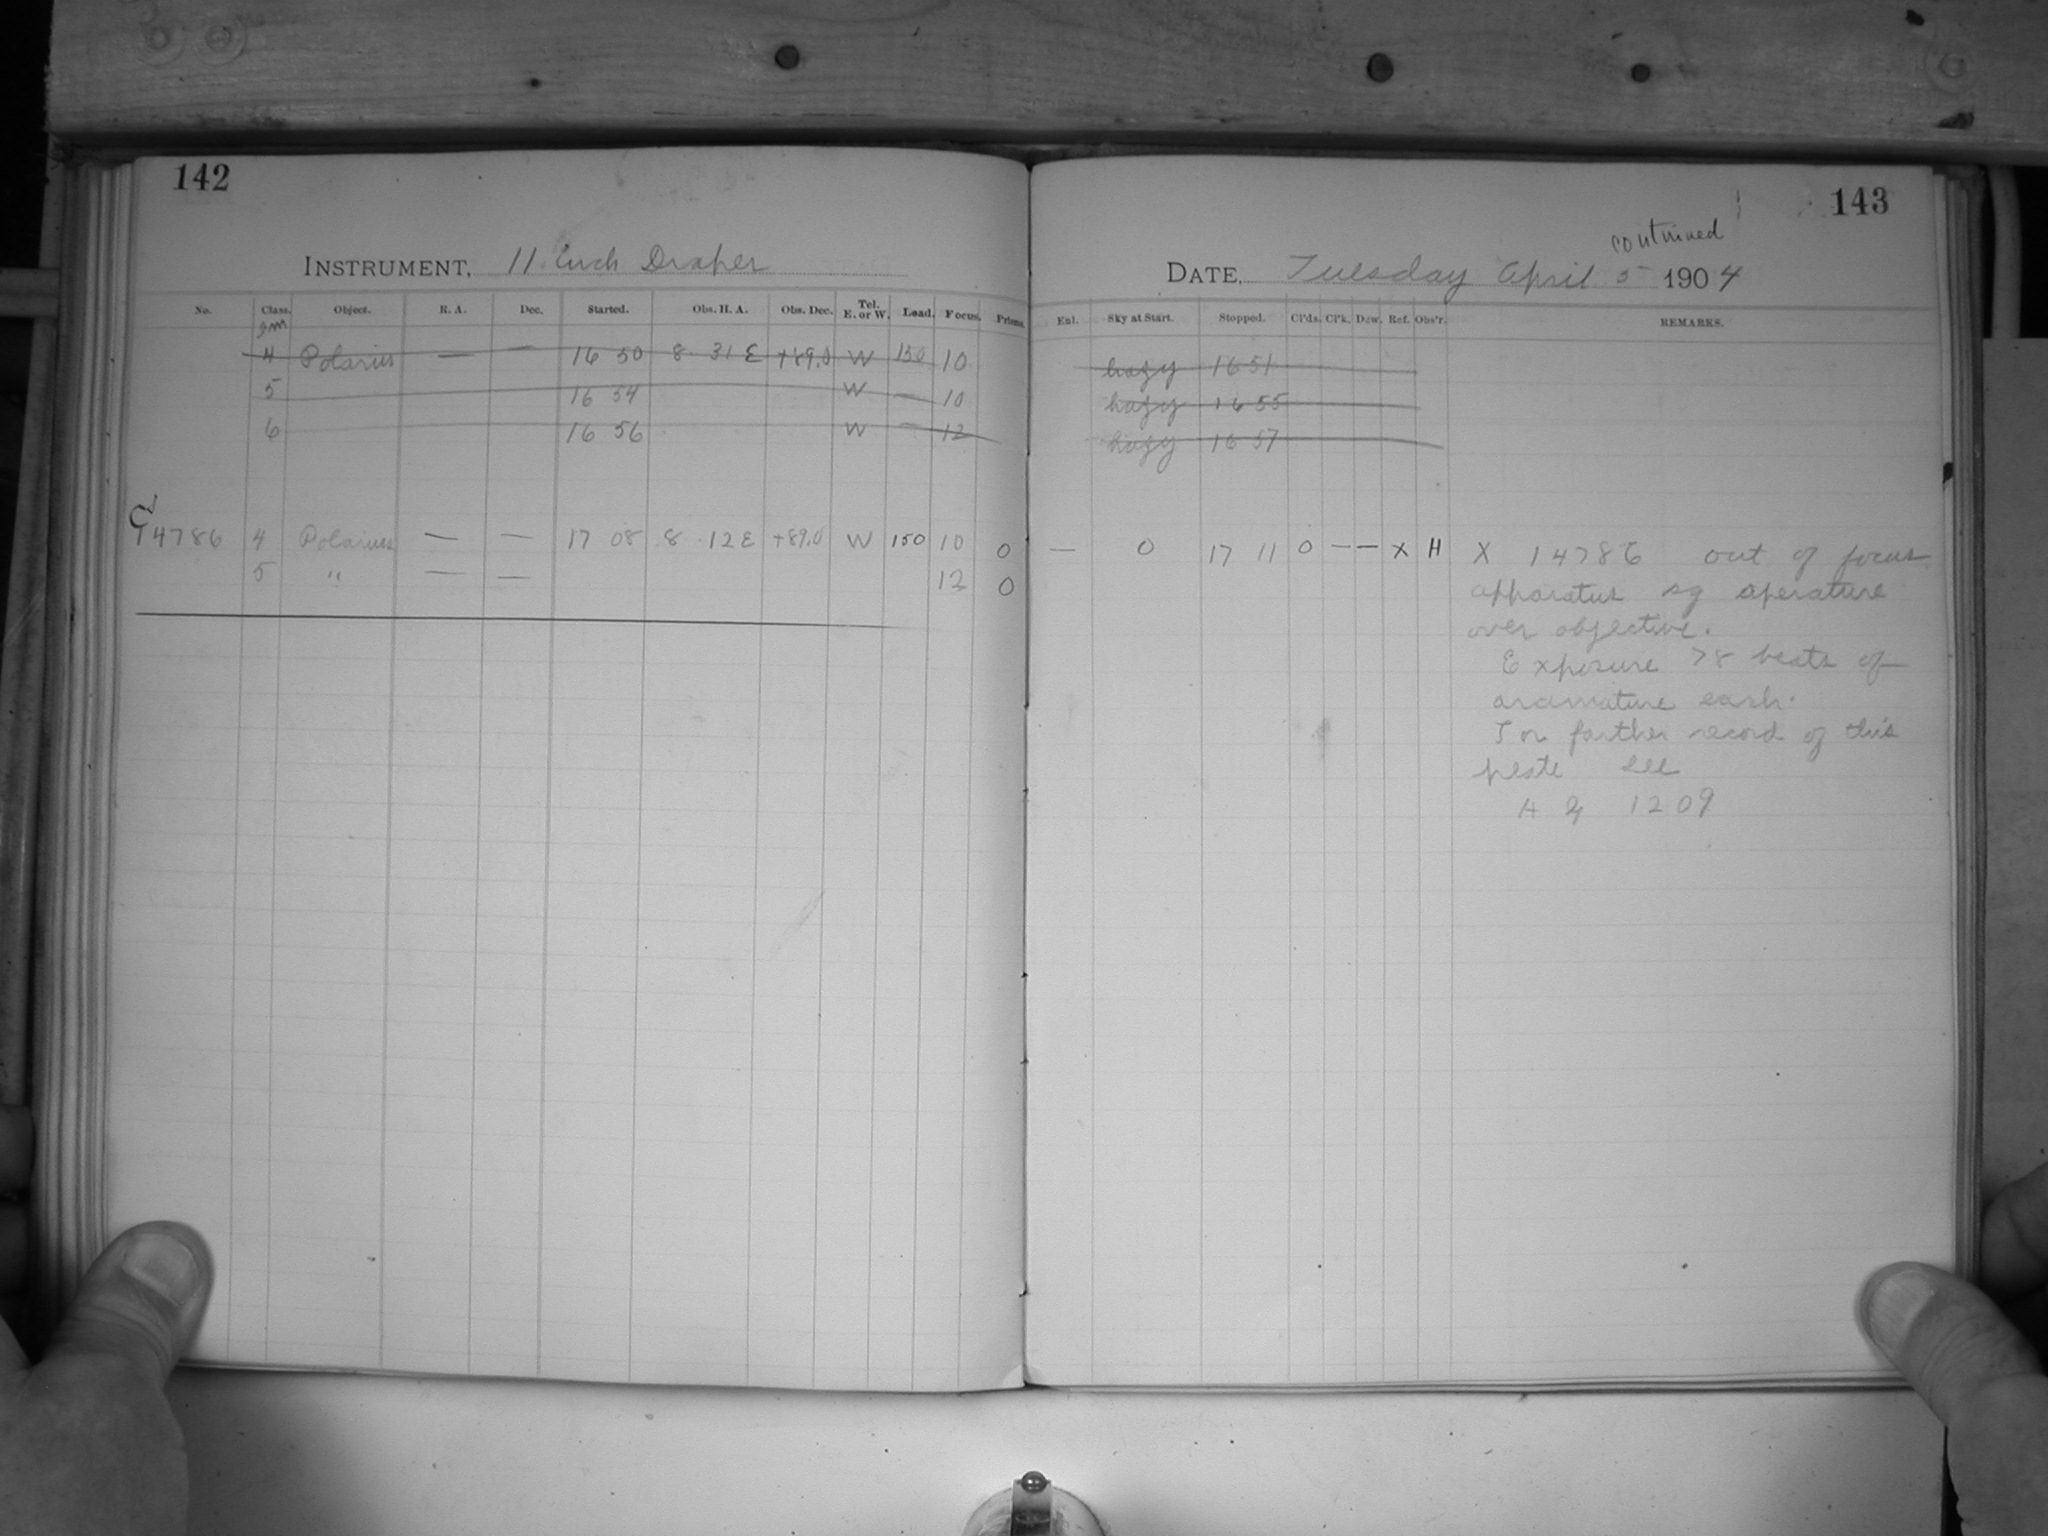 142
INSTRUMENT, 11 Inch Draper
No. Class. Object. R. A. Dec. Started. Obs. H. A. Obs. Dec. Tel. E. or W. Load. Focus. Prisms.
4 Polarius — — 16 50 8 31 E +89.0 W 150 10
5 16 54 W — 10
6 16 56 W — 12
C 14786 4 Polarius — — 17 08 8 12 E +89.0 W 150 10 0
5 " — — 12 0
143
continued
DATE, Tuesday April 5 1904
Enl. Sky at Start. Stopped. Cl'ds. Cl'k. Dew. Ref. Obs'r. REMARKS.
hazy 16 51
hazy 16 55
hazy 16 57
— 0 17 11 0 — — X H X 14786 out of focus
apparatus sq aperature
over objective.
Exposure 78 beats of
aramature each.
For farther record of this
plate see
H 1209